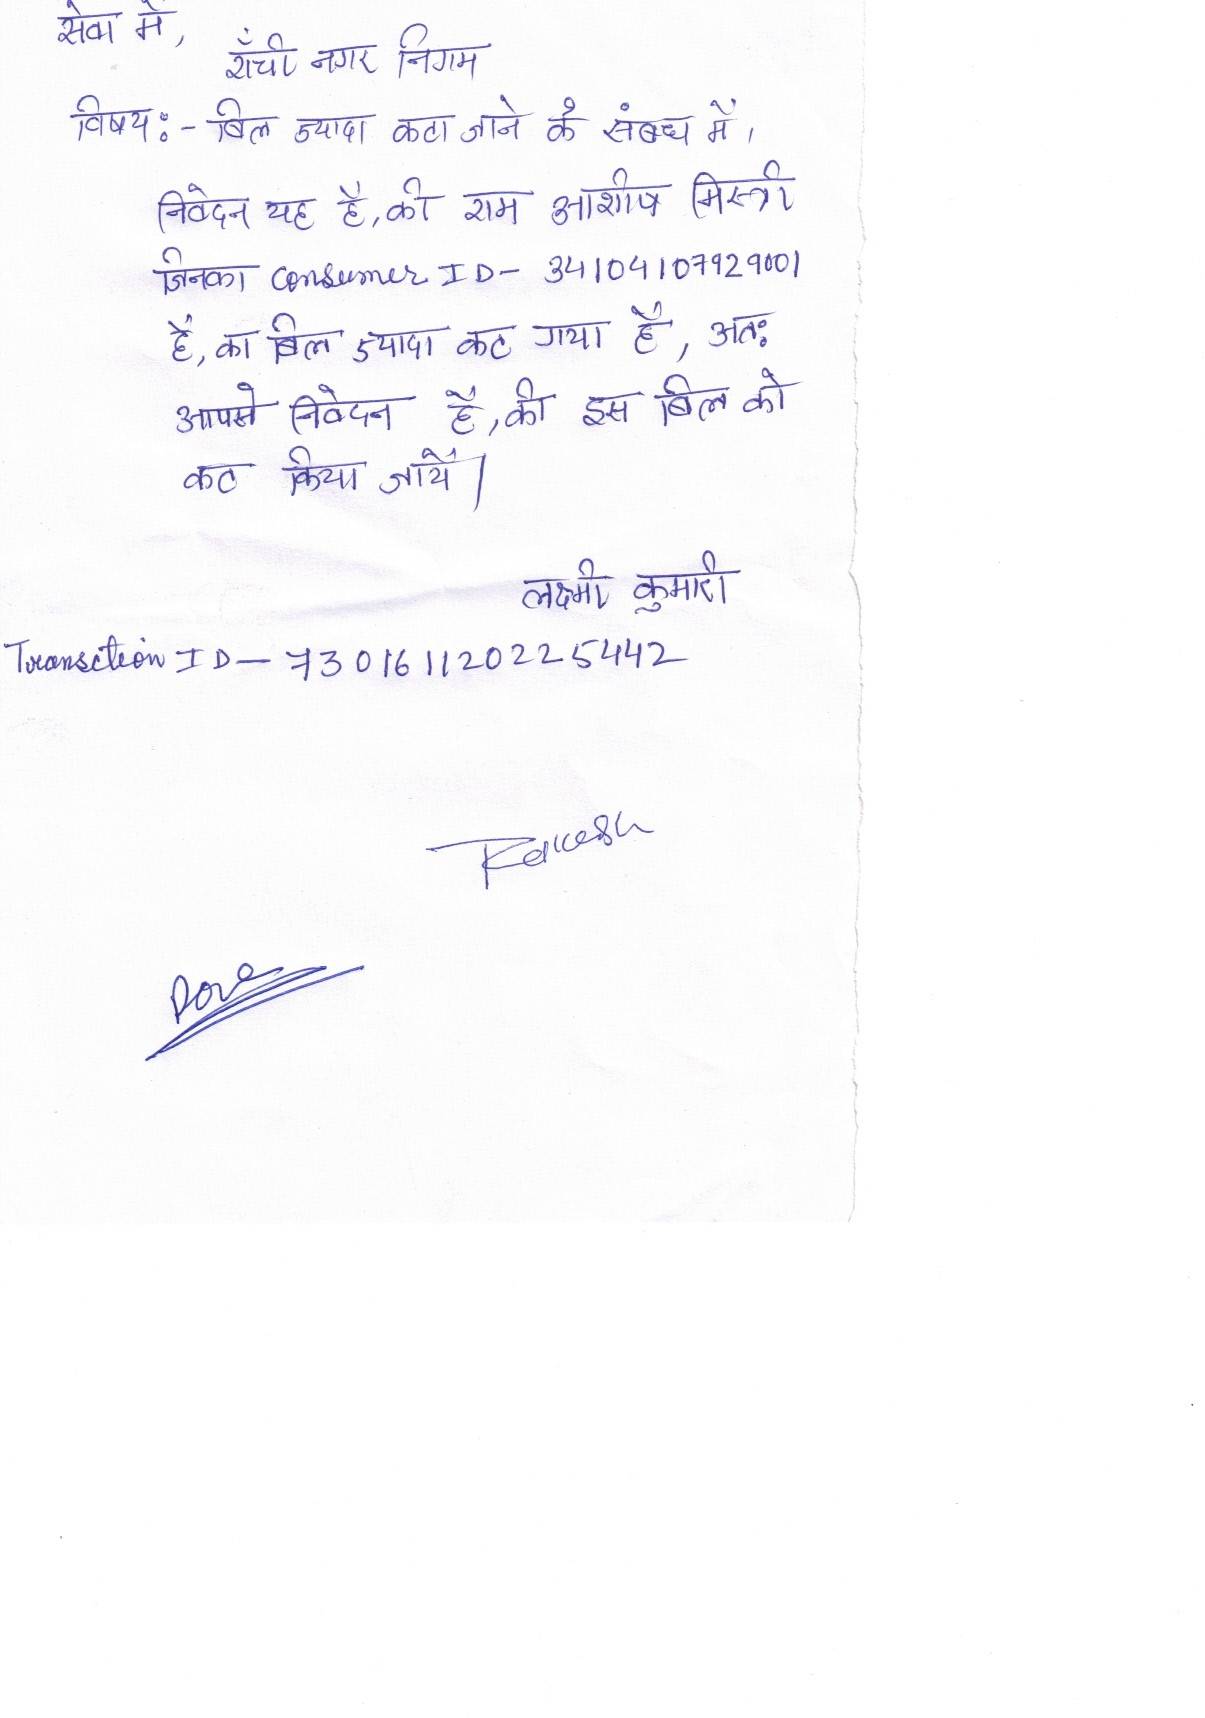 सेवा में,
राँची नगर निगम
विषय:- बिल ज्यादा कटा जाने के संबध में,
निवेदन यह है, की राम आशीष मिस्त्री
जिनका Consumer ID- 34104107929001
है, का बिल ज्यादा कट गया है, अतः
आपसे निवेदन है, की इस बिल को
कट किया जायें|
लक्ष्मी कुमारी
Transction ID- 730161120225442
Rakesh
Done